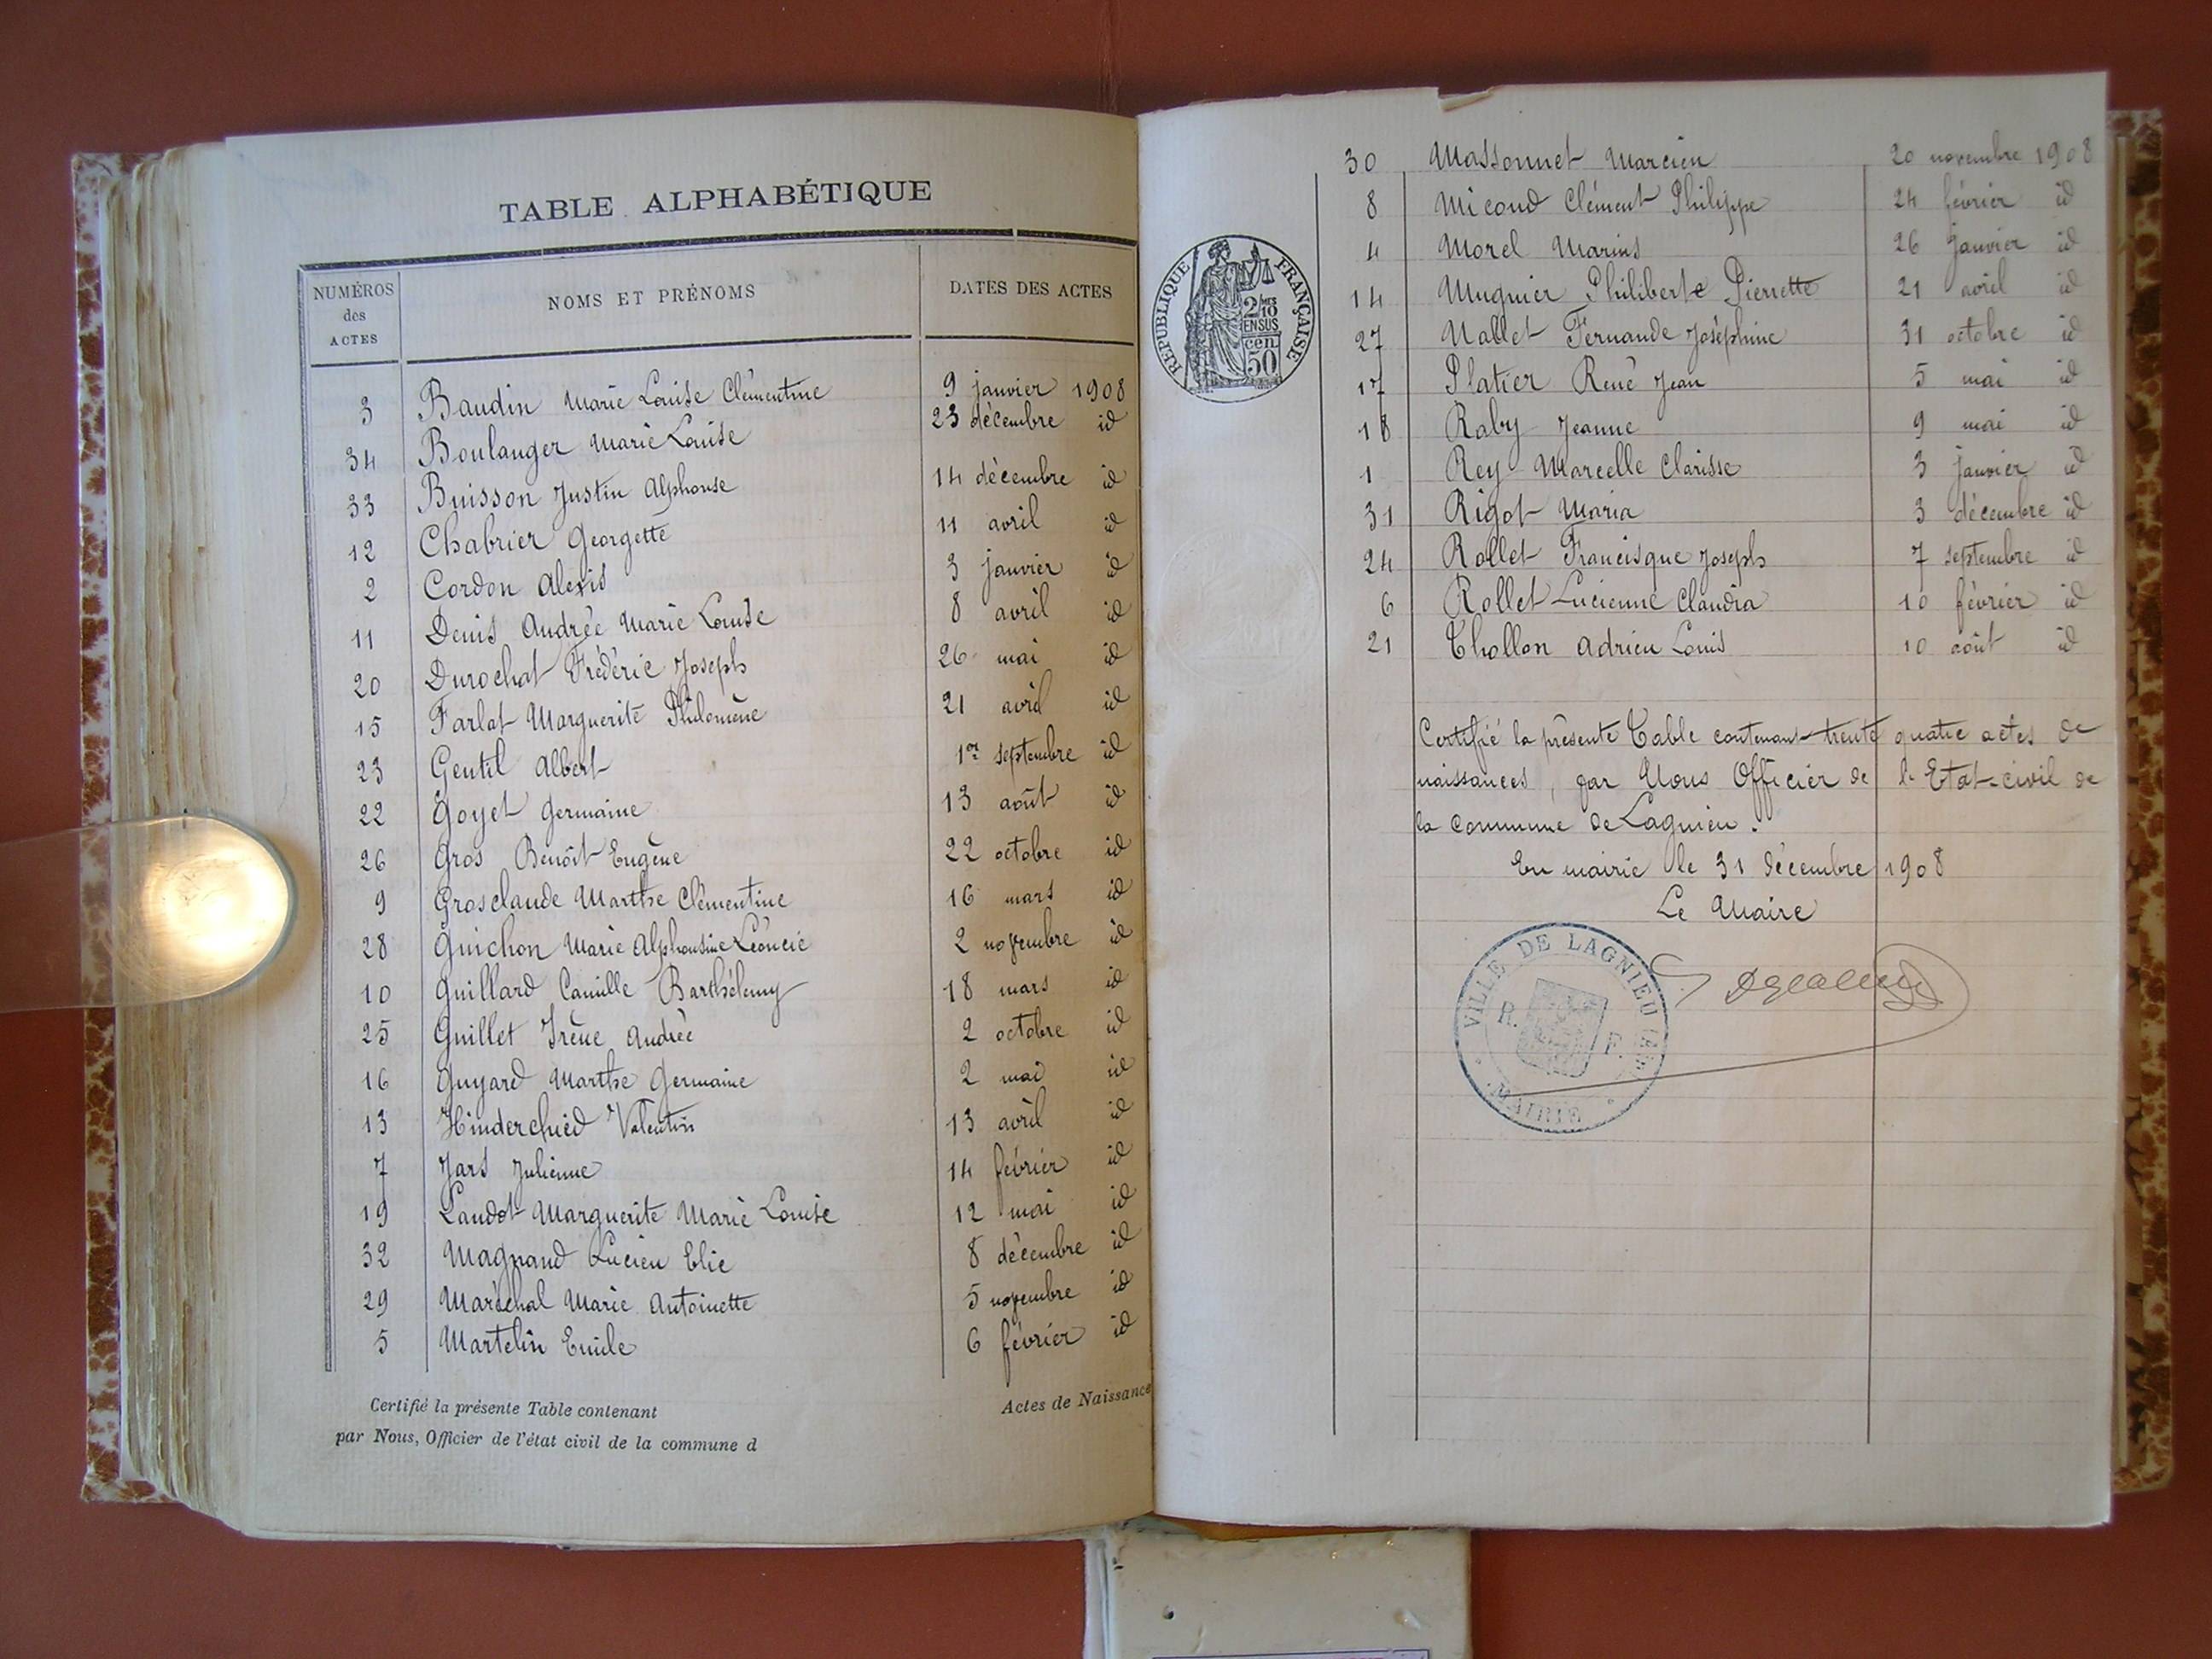 TABLE ALPHABÉTIQUE
NUMÉROS
des
ACTES
NOMS ET PRÉNOMS
DATES DES ACTES
3 Baudin Marie Louise Clémentine 9 janvier 1908
34 Boulanger Marie Louise 23 décembre id
33 Buisson Justin Alphonse 14 décembre id
12 Chabrier Georgette 11 avril id
2 Cordon Alexis 3 janvier id
11 Denis Andrée Marie Louise 8 avril id
20 Durochat Frédéric Joseph 26 mai id
15 Farlat Marguerite Philomène 21 avril id
23 Gentil Albert 1er septembre id
22 Goyet Germaine 13 août id
26 Gros Benoît Eugène 22 octobre id
9 Grosclaude Marthe Clémentine 16 mars id
28 Guichon Marie Alphonsine Léoncie 2 novembre id
10 Guillard Camille Barthélemy 18 mars id
25 Guillet Irène Andrée 2 octobre id
16 Guyard Marthe Germaine 2 mai id
13 Hinderchied Valentin 13 avril id
7 Jars Julienne 14 février id
19 Landot Marguerite Marie Louise 12 mai id
32 Magnand Lucien Elie 8 décembre id
29 Maréchal Marie Antoinette 5 novembre id
5 Martelin Emile 6 février id
Certifié la présente Table contenant Actes de Naissance
par Nous, Officier de l'état civil de la commune d
RÉPUBLIQUE FRANÇAISE
2/10
EN SUS
cen.
50
30 Massonnet Marcien 20 novembre 1908
8 Micoud Clément Philippe 24 février id
4 Morel Marius 26 janvier id
14 Mugnier Philiberte Pierrette 21 avril id
27 Nallet Fernande Joséphine 31 octobre id
17 Platier René Jean 5 mai id
18 Raby Jeanne 9 mai id
1 Rey Marcelle Clarisse 3 janvier id
31 Rigot Maria 3 décembre id
24 Rollet Francisque Joseph 7 septembre id
6 Rollet Lucienne Claudia 10 février id
21 Thollon Adrien Louis 10 août id
Certifié la présente Table contenant trente quatre actes de
naissances, par Nous Officier de l'Etat-civil de
la commune de Lagnieu.
En mairie le 31 décembre 1908
Le Maire
VILLE DE LAGNIEU
R. F.
MAIRIE